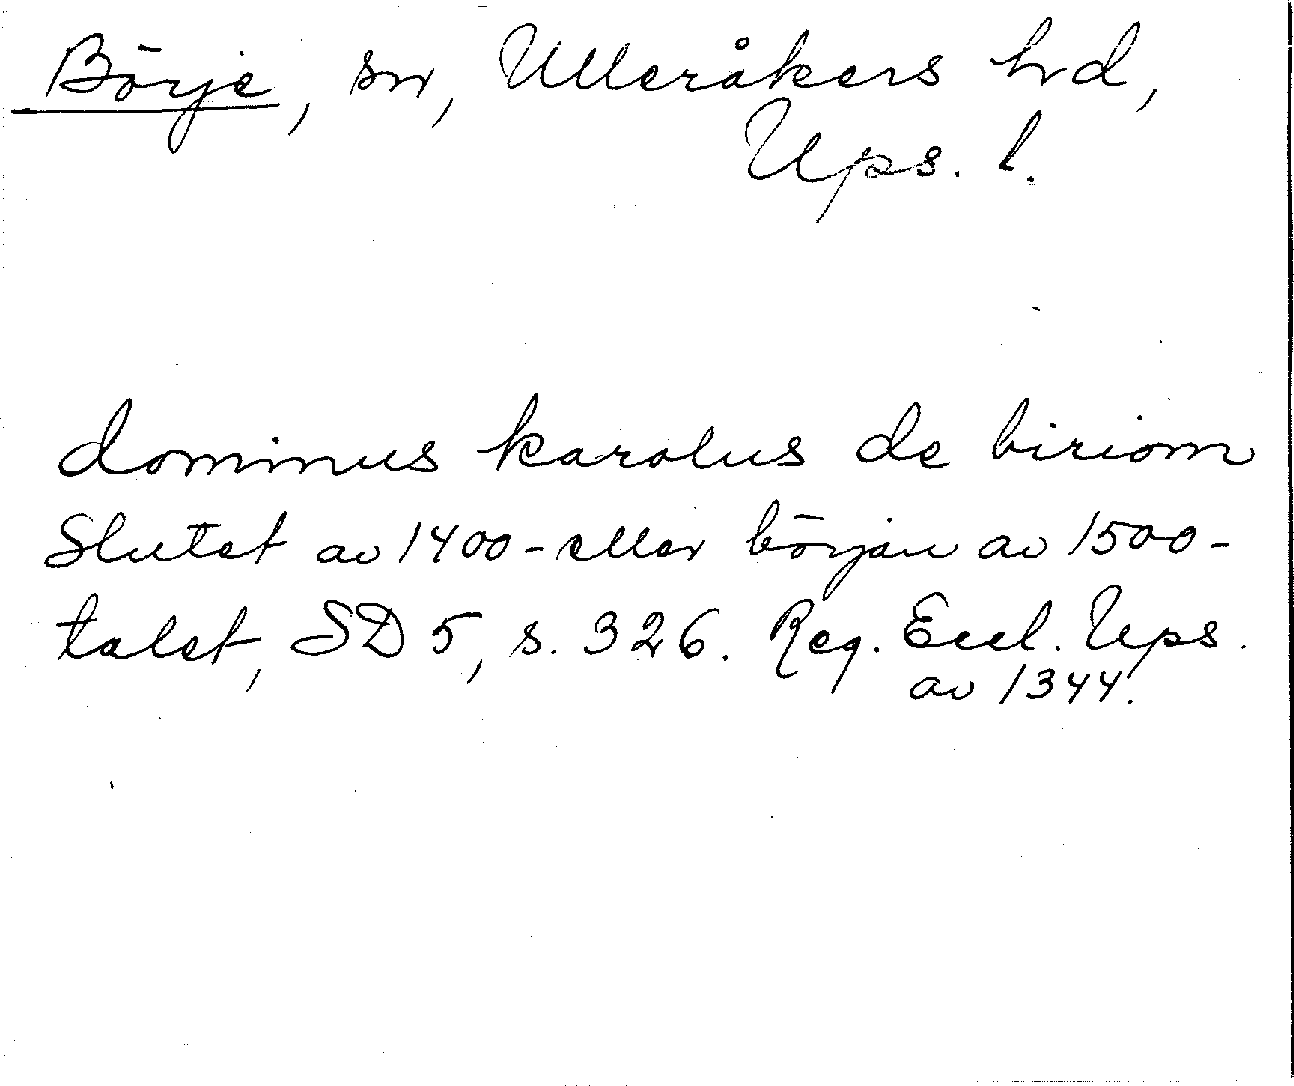 Börje, sn, Ulleråkers hd,
Ups. l.
dominus karolus de biriom
Slutet av 1400- eller början av 1500-
talet, SD 5, s. 326. Reg. Eccl. Ups.
av 1344.